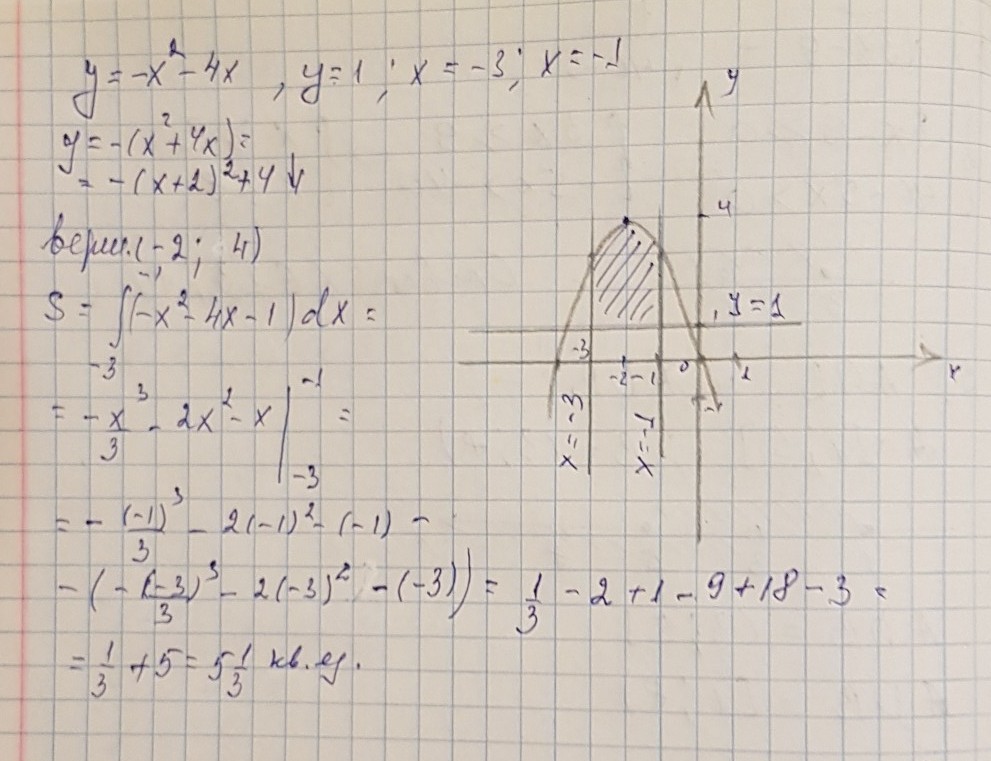 y = -x² - 4x , y = 1 ; x = -3 ; x = -1
y = -(x² + 4x) =
= -(x+2)² + 4 ↓
верш. (-2; 4)
S = ∫₋₃⁻¹ (-x² - 4x - 1) dx =
= - x³/3 - 2x² - x |₋₃⁻¹ =
= - (-1)³/3 - 2(-1)² - (-1) -
- (- (-3)³/3 - 2(-3)² - (-3)) = 1/3 - 2 + 1 - 9 + 18 - 3 =
= 1/3 + 5 = 5 1/3 кв. ед.
y
4
, y = 1
-3
-2
-1
0
1
x
-1
x = -3
x = -1